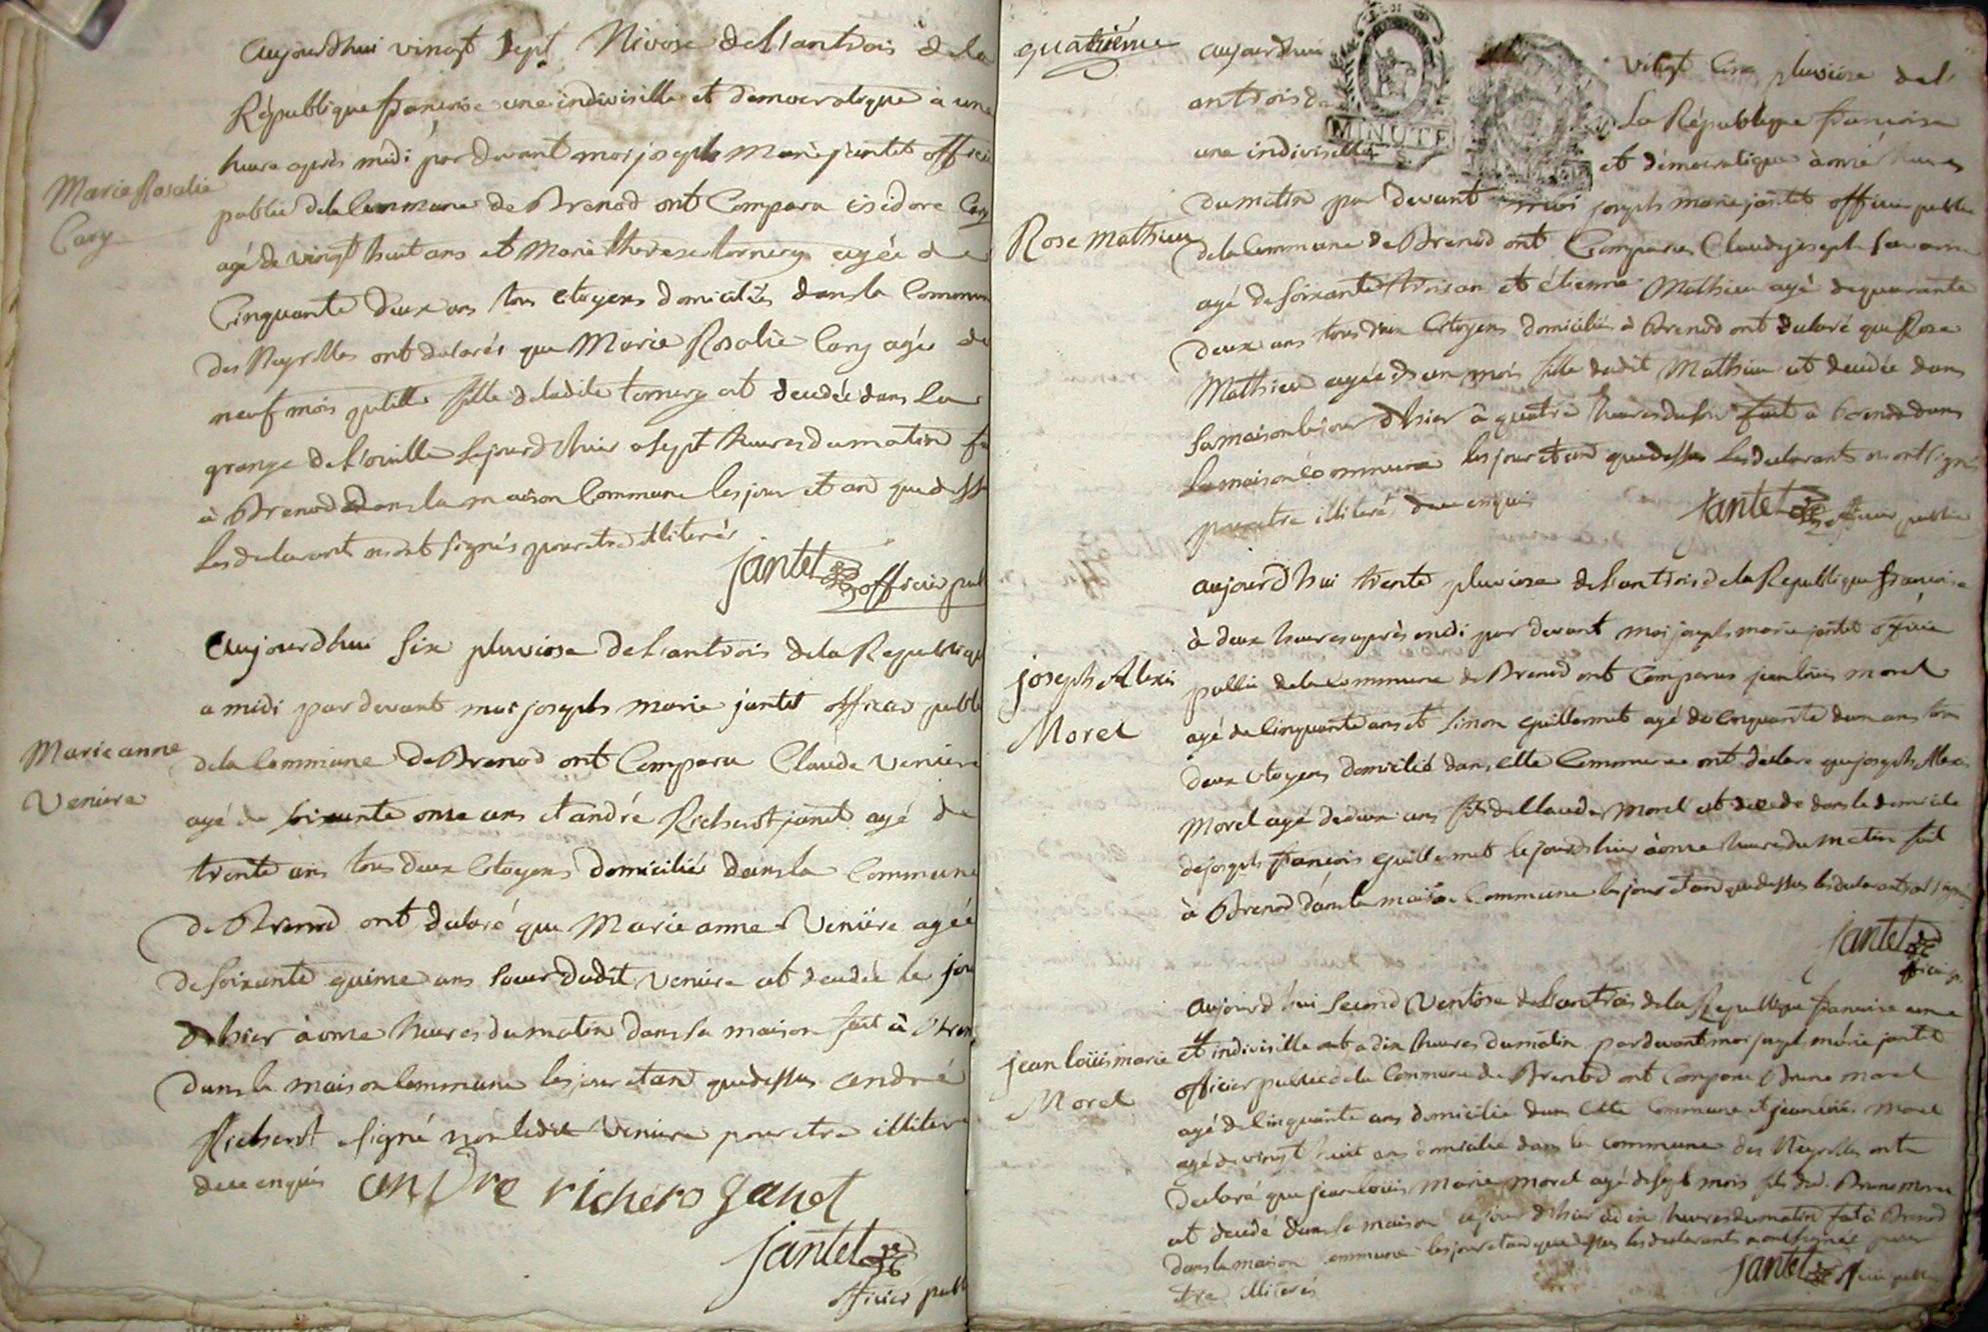 aujourdhui vingt sept Nivose de l'an trois de la
République françoise une indivisille et démocratique a une
heure après midi par devant moi joseph Marie jantet offici
Marie Rosalie
Cary
public de la Commune de Brenod ont Comparu isidore Cary
agé de vingt huit ans et Marie therese tornery agée de
Cinquante deux ans tous Citoyens domiciliés dans la Commune
des Neyrolles ont declarés que Marie Rosalie Cary agée de
neuf mois fille de ladite tornery est decedée dans la
grange de l'ouille le jourdhuir a sept heures du matin fa
à Brenod dans la maison Commune les jour et and que dessu
Les declarants n'ont signés pour etre illiterés
jantet officier pub
aujourdhui six pluviose de l'an trois de la Republique
a midi par devant moi joseph marie jantet officier public
Marie anne
Veniere
de la Commune de Brenod ont Comparu Claude Veniere
agé de soixante onze ans et andré Richerot janet agé de
trente ans tous deux Citoyens domiciliés dans la Commune
de Brenod ont declaré que Marie anne Veniere agée
de soixante quinze ans soeur dudit Veniere est decedée le jou
dhier à onze heures du matin dans sa maison fait à Bren
dans la maison Commune les jour et and que dessus andré
Richerot a signé non ledit Veniere pour etre illitere
de ce enquis andre richero ganet
jantet
officier publi
quatriéme
aujourdhui vingt Cinq pluviose de l'
an trois de La République francoise
MINUTE
une indivisille et démocratique à onze heures
du matin par devant moi joseph marie jantet officier public
Rose Mathieu
de la Commune de Brenod ont Comparu Claude joseph
agé de soixante trois an et étienne Mathieu agé de quarante
deux ans tous deux Citoyens domiciliés à Brenod ont declaré que Rose
Mathieu agée d'un mois fille dudit Mathieu est decedée dans
sa maison le jour d'hier à quatre heures du soir fait a brenod dans
la maison commune les jour et and que dessus Les declarants n'ont signé
pour etre illiteré de ce enquis
jantet officier public
aujourd'hui trente pluviose de l'an trois de la Republique françoise
à deux heures après midi par devant moi joseph marie jantet officie
joseph Alexis
Morel
public de la commune de Brenod ont Comparus jean louis morel
agé de Cinquante ans et Simon guillermet agé de Cinquante deux ans tous
deux Citoyens domicilié dans cette Commune ont declare que joseph Alexi
Morel agé de deux ans fils de Claude Morel est decede dans le domicile
de joseph françois guillermet le jourdhuir à onze heures du matin fait
à Brenod dans la maison Commune les jour et and que dessus les declarants ont signé
jantet
officier p
aujourd'hui second Ventose de l'an trois de la Republique francoise une
jean loüis marie
Morel
et indivisille a dix heures du matin par devant moi joseph marie jantet
officier public de la Commune de Brenod ont Comparu Brune morel
agé de Cinquante ans domicilié dans cette Commune et jean louis morel
agé de vingt huit ans domicilié dans la commune des Neyrolles ont
declaré que jean louis Marie morel agé de sept mois fils dud. Brune morel
est decede dans sa maison le jour dhier a dix heures du matin fait à Brenod
dans la maison commune les jour et and que dessus les declarants n'ont signés pour
etre illiterés
jantet officier public